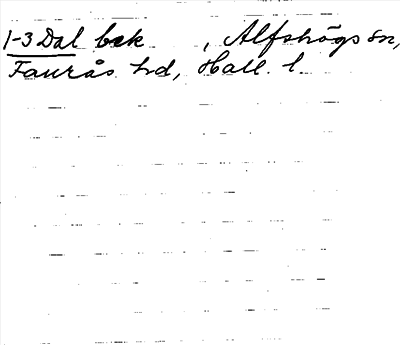 1-3 Dal bek , Alfshögs sn,
Faurås hd, Hall. l.